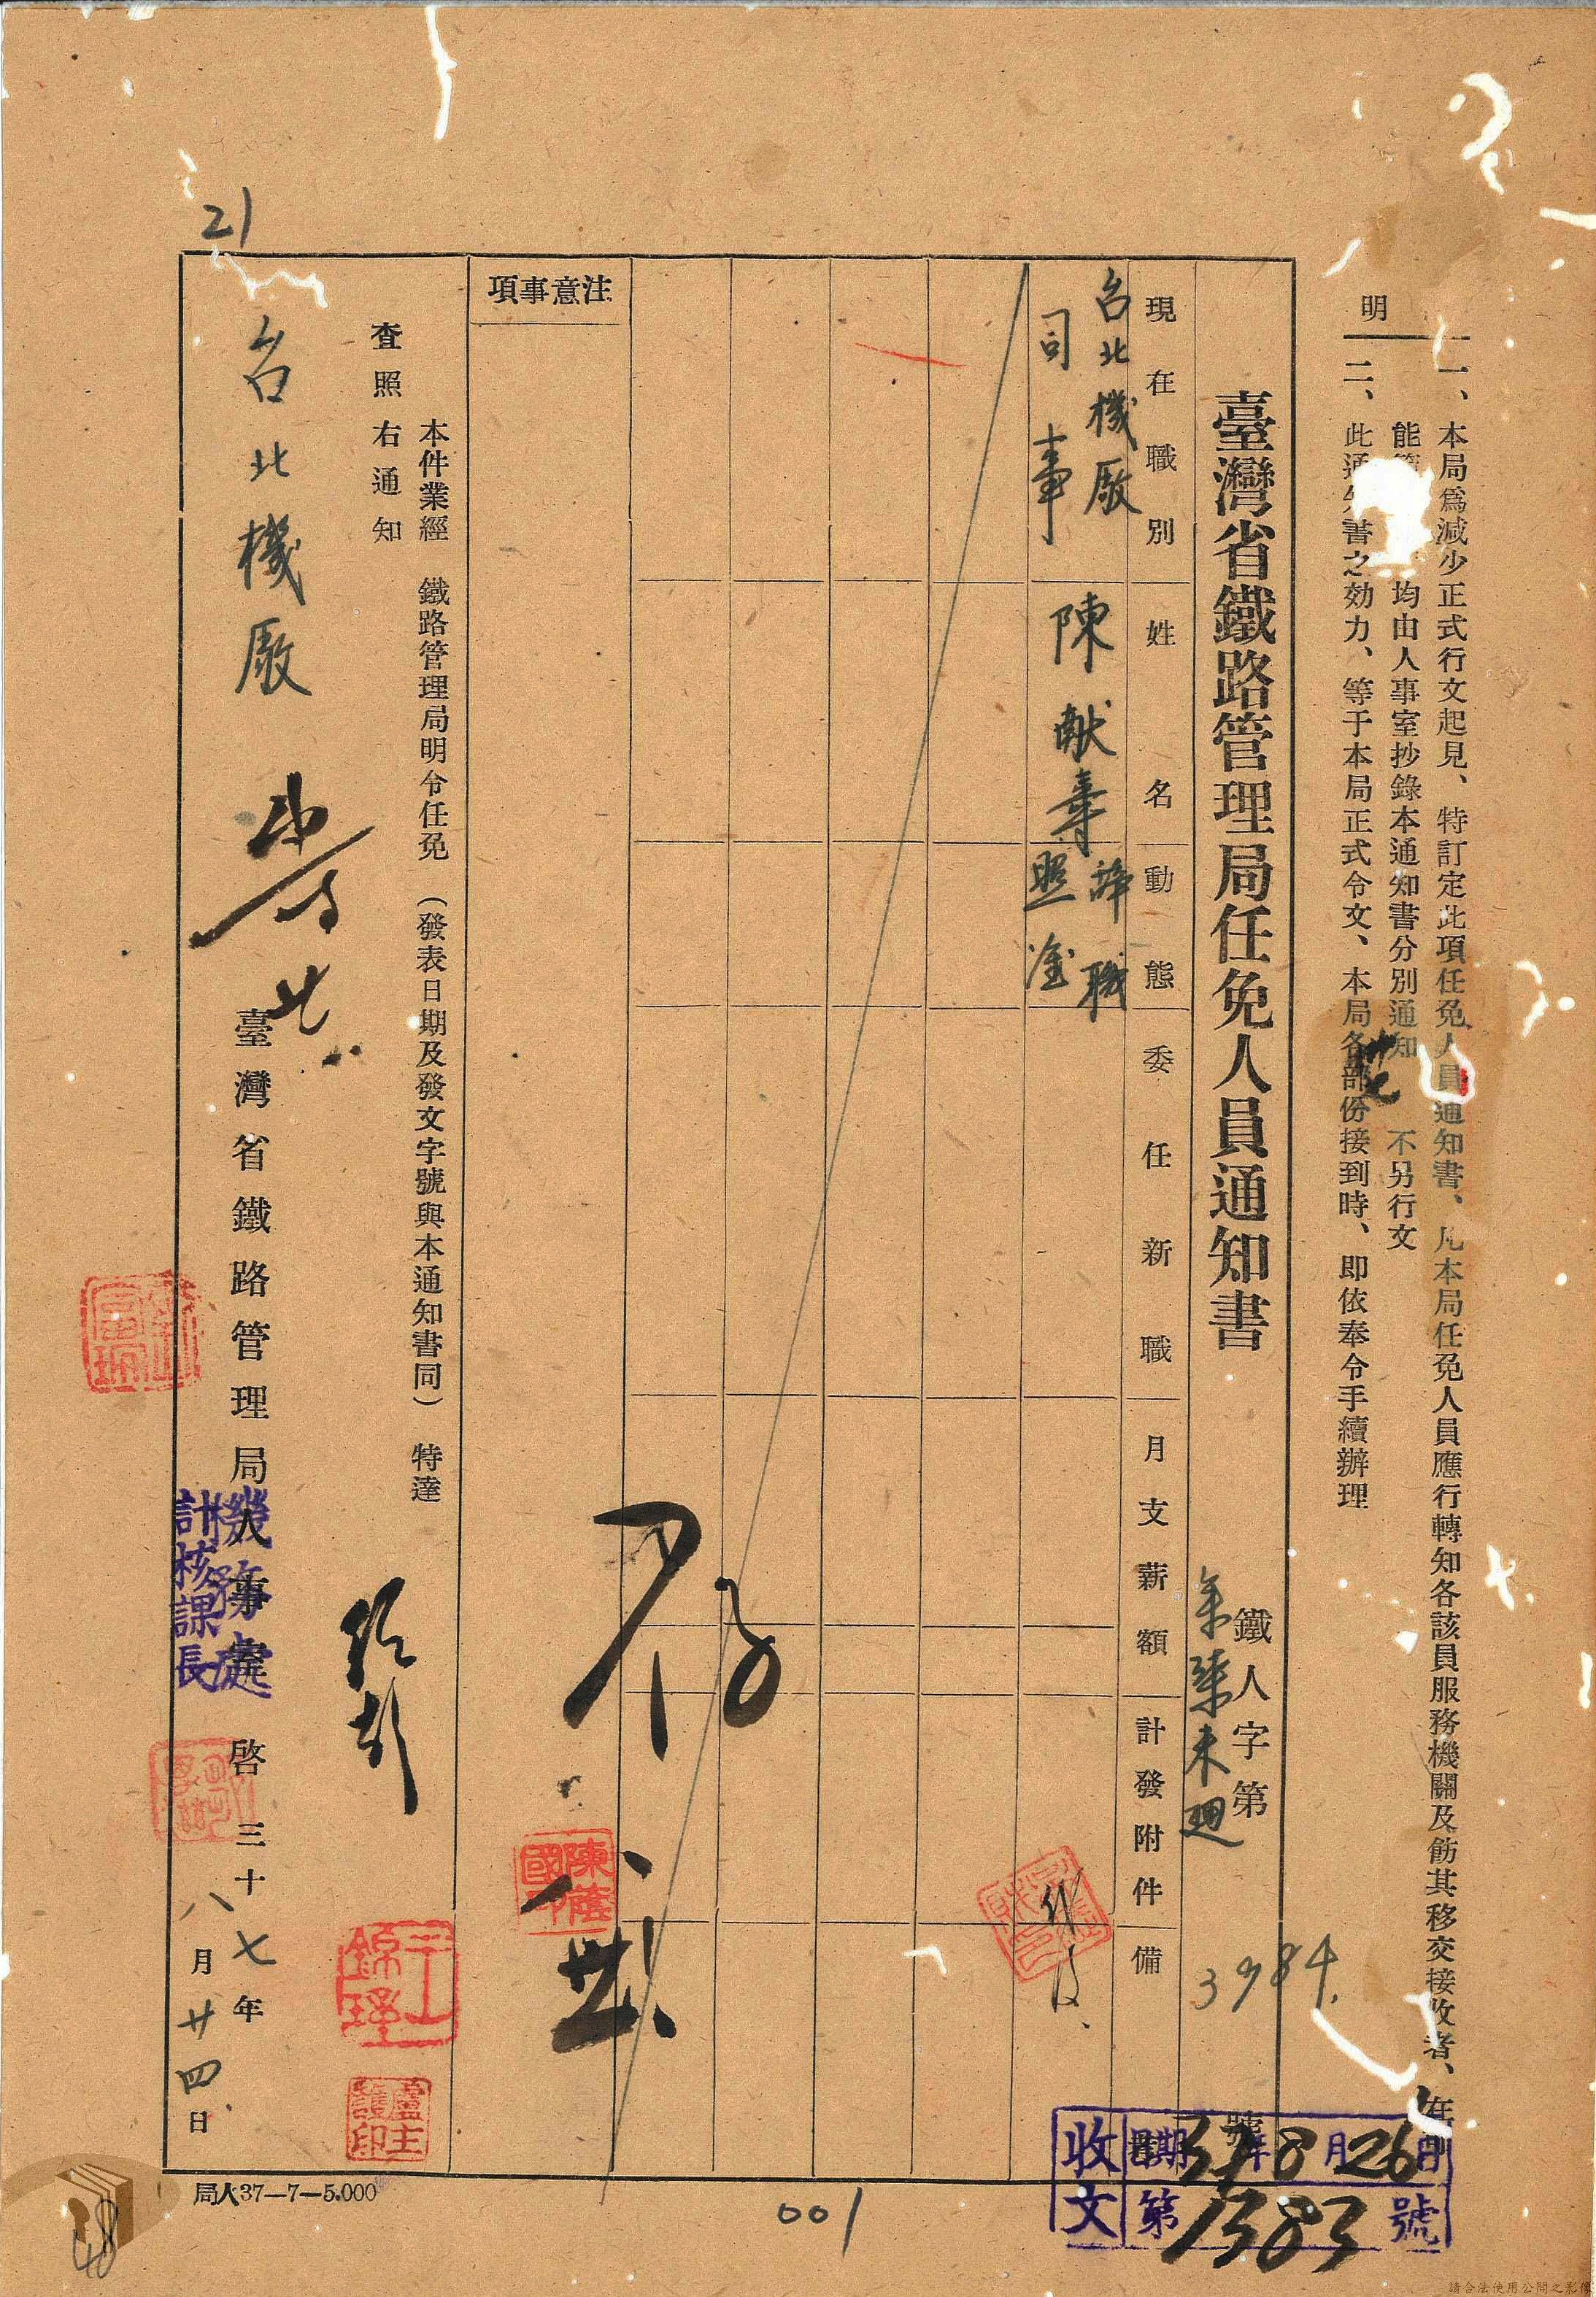 明
一、本局爲減少正式行文起見、特訂定此項任免人員通知書、凡本局任免人員應行轉知各該員服務機關及飭其移交接收者、在
能 均由人事室抄錄本通知書分別通知 不另行文
二、此通知書之効力、等于本局正式令文、本局各部份接到時、即依奉令手續辦理
臺灣省鐵路管理局任免人員通知書
鐵人字第 號
3984.
現在職別
姓名
動態
委任新職
月支薪額
計發附件
備
台北機廠
司事
陳献壽
辭職
照准
注意事項
本件業經 鐵路管理局明令任免 (發表日期及發文字號與本通知書同) 特達
查照右通知
台北機廠
臺灣省鐵路管理局人事室 啓 三十七年
八月廿四日
機務處
計核課長
陳蔭國印
王錦理
盧主護印
收文
日期 37年8月26日
第1383號
局人37—7—5.000
001
21
48
請合法使用公開之影像